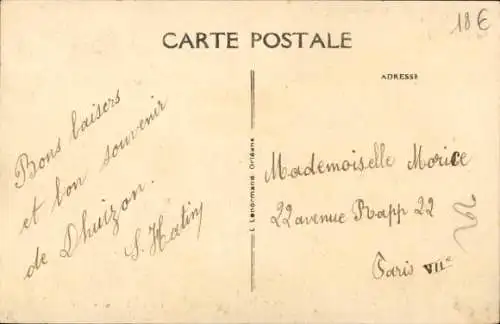 18€
CARTE POSTALE
ADRESSE
Bons baisers
et bon souvenir
de Dhuizon.
S. Hatiny
L. Lenormand Orléans
Mademoiselle Morice
22 avenue Rapp 22
Paris VIIe